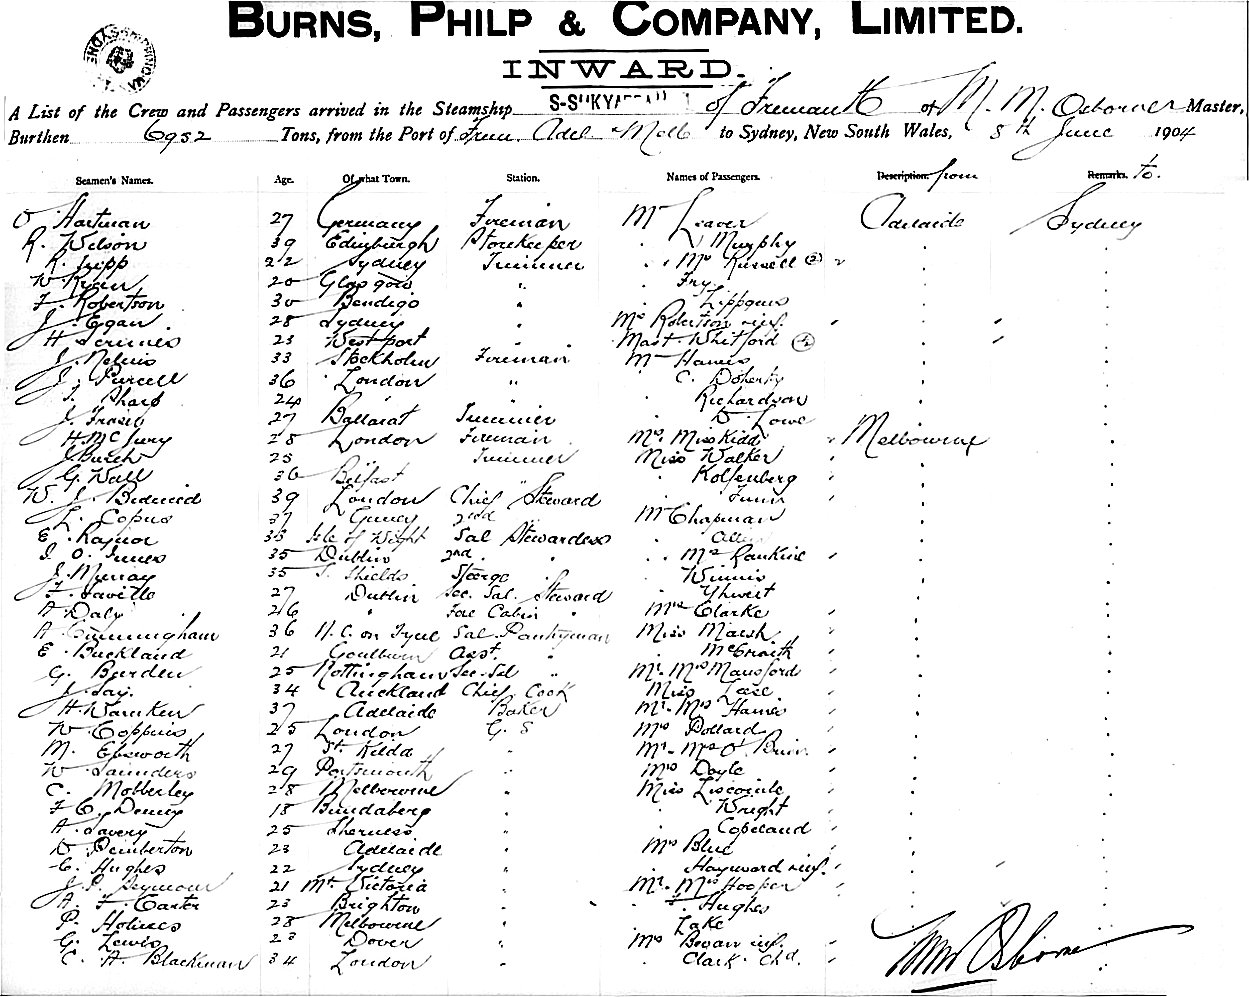 BURNS, PHILP & COMPANY, LIMITED.
INWARD.
A List of the Crew and Passengers arrived in the Steamship of Fremantle of M. M. Osborne Master,
Burthen 6952 Tons, from the Port of Frem. Adel & Melb to Sydney, New South Wales, 8th June 1904
Seamen's Names. Age. Of what Town. Station. Names of Passengers. Description. from Remarks. to.
O Hartman 27 Germany Fireman Mr Leaver Adelaide Sydney
R. Wilson 39 Edinburgh Storekeeper " Murphy
R. Tripp 22 Sydney Trimmer " " Mrs Russell (2) "
W Ryan 20 Glasgow " " Fry
F. Robertson 30 Bendigo " "
J. Egan 28 Sydney " Mrs Robertson inf.
H 23 Westport " Mast Whitford
J. 33 Stockholm Fireman Mr Harris
J. Purcell 36 London " " C. Doherty
J. Sharp 24 Richardson
J. Fraser 27 Ballarat Trimmer " D. Lowe
H. McJury 28 London Fireman Mrs. Miss Kidd Melbourne
J Burch 25 Trimmer Miss Walker
G. Wall 36 Belfast " Kolfenberg
W. J. 39 London Chief Steward
L. Copus 37 2nd " Mr Chapman
E. Raynor 35 Isle of Wight Sal Stewardess
J. O. Innes 35 Dublin 2nd " " " Mrs Rankine
J. Murray 35 S. Shields Steerge " "
F. Saville 27 Dublin Sec. Sal. Steward "
A Daly 26 " Fore Cabin " Mrs Clarke
A Cunningham 36 N. C. on Tyne Sal Pantryman Miss Marsh
E. Buckland 21 Goulburn Asst. " " McCraith
G. Burden 25 Nottingham Sec. Sal " Mr. Mrs Mansford
J. Jay. 34 Auckland Chief Cook Miss
H Warnken 37 Adelaide Baker Mr. Mrs Harris
W Coppins 25 London G. S Mrs Pollard
M. Ebsworth 27 St. Kilda " Mr. Mrs O'Brien
W Saunders 29 Portsmouth " Mrs Doyle
C. Mobberley 28 Melbourne " Miss
F C. Denny 18 Bundaberg " " Wright
A. Savery 25 Sherness " " Copeland
W Pemberton 23 Adelaide " Mrs Blue
C. Hughes 22 Sydney " " Hayward inf.
J. P. Seymour 21 Mt. Victoria " Mr. Mrs Hooper
A. F. Carter 23 Brighton " " F. Hughes
P. Holmes 28 Melbourne " " Lake
G. Lewis 23 Dover " Mrs Bevan inf.
C. A. Blackman 34 London " " Clark Chd.
Osborne